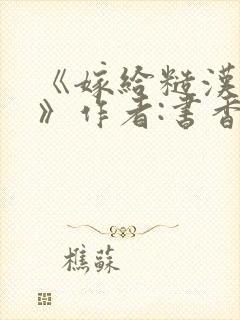 《嫁给糙漢
》作者:書香
樵蘇